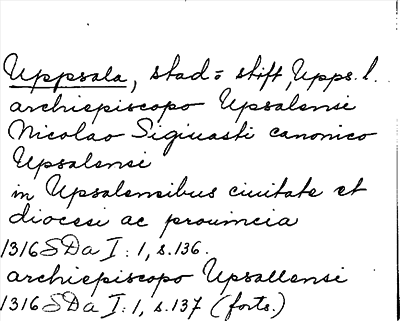 Uppsala, stad = stift, Upps. l.
archiepiscopo Upsalensi
Nicolao Sigiuasti canonico
Upsalensi
in Upsalensibus ciuitate et
diocesi ac prouincia
1316 SDa I: 1, s. 136.
archiepiscopo Upsallensi
1316 SDa I: 1, s. 137 (forts.)